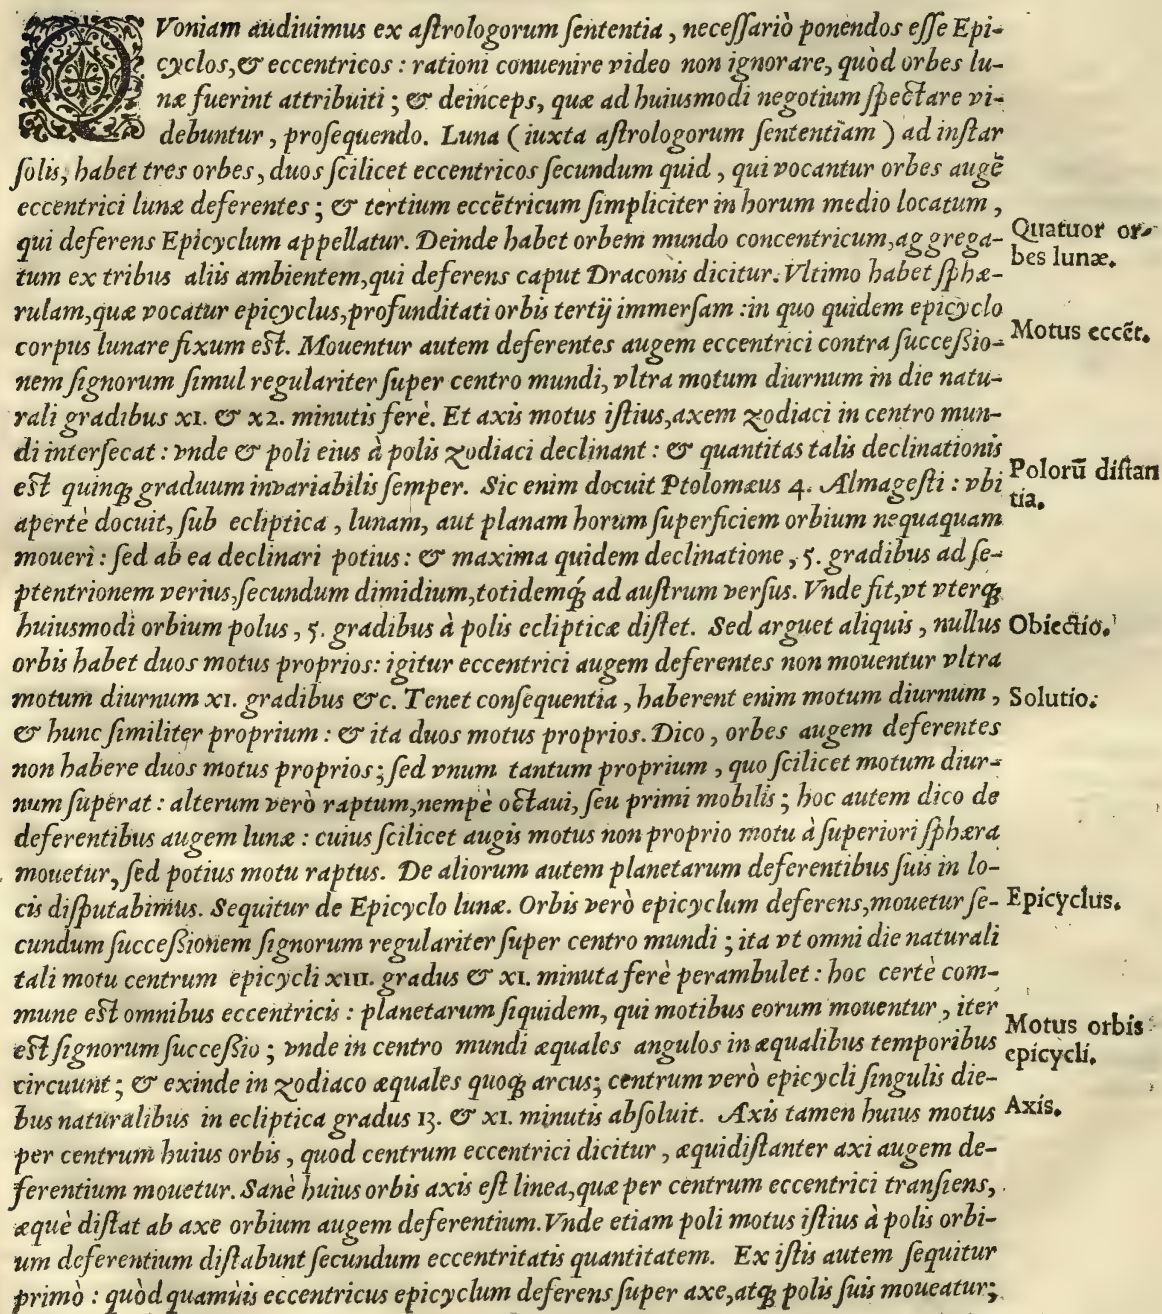 QVoniam audiuimus ex aſtrologorum ſententia, neceſſariò ponendos eſſe Epi-
cyclos, & eccentricos : rationi conuenire video non ignorare, quòd orbes lu-
næ fuerint attribuiti ; & deinceps, quæ ad huiusmodi negotium ſpectare vi-
debuntur, proſequendo. Luna (iuxta aſtrologorum ſententiam) ad inſtar
ſolis, habet tres orbes, duos ſcilicet eccentricos ſecundum quid, qui vocantur orbes augē
eccentrici lunæ deferentes ; & tertium eccētricum ſimpliciter in horum medio locatum,
qui deferens Epicyclum appellatur. Deinde habet orbem mundo concentricum, aggrega-
Quatuor or-
bes lunæ.
tum ex tribus aliis ambientem, qui deferens caput Draconis dicitur. Vltimo habet ſphæ-
rulam, quæ vocatur epicyclus, profunditati orbis tertij immerſam : in quo quidem epicyclo
corpus lunare fixum eſt. Mouentur autem deferentes augem eccentrici contra ſucceſſio-
Motus eccēt.
nem ſignorum ſimul regulariter ſuper centro mundi, vltra motum diurnum in die natu-
rali gradibus xi. & x2. minutis ferè. Et axis motus iſtius, axem zodiaci in centro mun-
di interſecat : vnde & poli eius à polis zodiaci declinant : & quantitas talis declinationis
eſt quinq; graduum invariabilis ſemper. Sic enim docuit Ptolomæus 4. Almageſti : vbi
Polorū diſtan
tia.
apertè docuit, ſub ecliptica, lunam, aut planam horum ſuperficiem orbium nequaquam
moueri : ſed ab ea declinari potius : & maxima quidem declinatione, 5. gradibus ad ſe-
ptentrionem verius, ſecundum dimidium, totidemq́; ad auſtrum verſus. Vnde fit, vt vterq;
huiusmodi orbium polus, 5. gradibus à polis eclipticæ diſtet. Sed arguet aliquis, nullus
Obiectio.
orbis habet duos motus proprios : igitur eccentrici augem deferentes non mouentur vltra
motum diurnum xi. gradibus &c. Tenet conſequentia, haberent enim motum diurnum,
Solutio.
& hunc ſimiliter proprium : & ita duos motus proprios. Dico, orbes augem deferentes
non habere duos motus proprios ; ſed vnum tantum proprium, quo ſcilicet motum diur-
num ſuperat : alterum verò raptum, nempè octaui, ſeu primi mobilis ; hoc autem dico de
deferentibus augem lunæ : cuius ſcilicet augis motus non proprio motu à ſuperiori ſphæra
mouetur, ſed potius motu raptus. De aliorum autem planetarum deferentibus ſuis in lo-
cis diſputabimus. Sequitur de Epicyclo lunæ. Orbis verò epicyclum deferens, mouetur ſe-
Epicyclus.
cundum ſucceſſionem ſignorum regulariter ſuper centro mundi ; ita vt omni die naturali
tali motu centrum epicycli xiii. gradus & xi. minuta ferè perambulet : hoc certè com-
mune eſt omnibus eccentricis : planetarum ſiquidem, qui motibus eorum mouentur, iter
eſt ſignorum ſucceſſio ; vnde in centro mundi æquales angulos in æqualibus temporibus
Motus orbis
epicycli.
circuunt ; & exinde in zodiaco æquales quoq; arcus; centrum verò epicycli ſingulis die-
bus naturalibus in ecliptica gradus 13. & xi. minutis abſoluit. Axis tamen huius motus
Axis.
per centrum huius orbis, quod centrum eccentrici dicitur, æquidiſtanter axi augem de-
ferentium mouetur. Sanè huius orbis axis eſt linea, quæ per centrum eccentrici tranſiens,
æquè diſtat ab axe orbium augem deferentium. Vnde etiam poli motus iſtius à polis orbi-
um deferentium diſtabunt ſecundum eccentritatis quantitatem. Ex iſtis autem ſequitur
primò : quòd quamùis eccentricus epicyclum deferens ſuper axe, atq; polis ſuis moueatur;